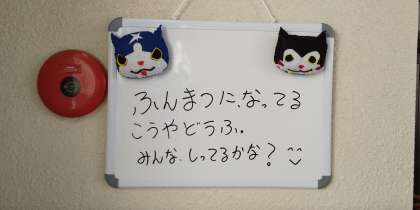 ふんまつに、なってる
こうやどうふ。
みんな、しってるかな?